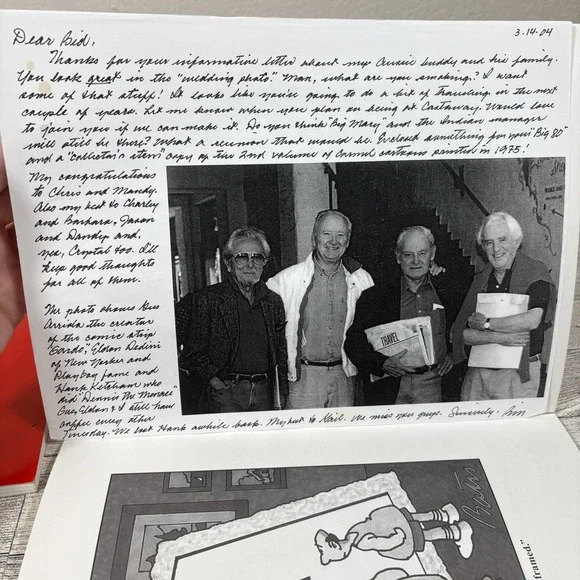 3-14-04
Dear Bid,
Thanks for your information letter about my Aussie buddy and his family.
You look great in the "wedding photo". Man, what are you smoking? I want
some of that stuff! It looks like you're going to do a bit of traveling in the next
couple of years. Let me know when you plan on being at Castaway. Would love
to join you if we can make it. Do you think "Big Mary" and the Indian manager
will still be there? What a reunion that would be. Enclosed something for your "Big 80"
and a "collector's item" copy of the 2nd volume of Carmel cartoons printed in 1975!
My congratulations
to Chris and Mandy.
Also my best to Charley
and Barbara, Jason
and and,
yes, Crystal too. I'll
keep good thoughts
for all of them.
The photo shows Gus
Arriola the creator
of the comic strip
"Gordo", Eldon Dedini
of New Yorker and
Playboy fame and
Hank Ketcham who
did "Dennis The Menace"
Gus, Eldon & I still have
coffee every other
Tuesday. We lost Hank awhile back. My best to. We miss you guys. Sincerely, Jim
TRAVEL
Bates
framed."